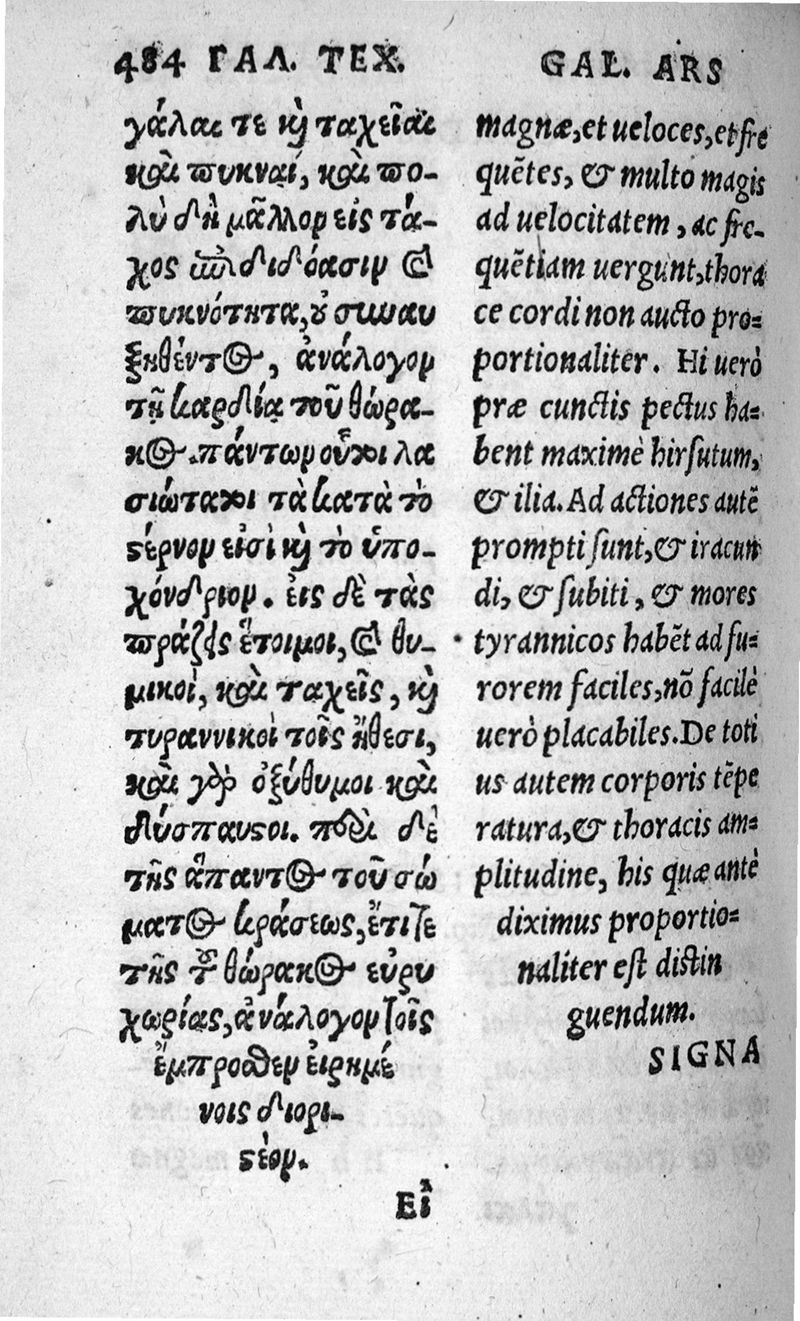 484 ΓΑΛ. ΤΕΧ.
γάλαι τε κ̀ ταχεῖαι
καὶ πυκναί, καὶ πο-
λὺ δὴ μᾶλλον εἰς τά-
χος ἐπιδιδόασιν καὶ
πυκνότητα, οὐ συναυ
ξηθέντος, ἀνάλογον
τῇ καρδίᾳ τοῦ θώρα-
κος. πάντων οὗτοι λα
σιώτατοι τὰ κατὰ τὸ
στέρνον εἰσὶ κ̀ τὸ ὑπο-
χόνδριον. εἰς δὲ τὰς
πράξεις ἕτοιμοι, καὶ θυ-
μικοί, καὶ ταχεῖς, κ̀
τυραννικοὶ τοῖς ἤθεσι,
καὶ γὰρ ὀξύθυμοι καὶ
δύσπαυστοι. περὶ δὲ
τῆς ἅπαντος τοῦ σώ
ματος κράσεως, ἔτι τε
τῆς τοῦ θώρακος εὐρυ
χωρίας, ἀνάλογον τοῖς
ἔμπροσθεν εἰρημέ
νοις διορι-
στέον.
Εἰ
GAL. ARS
magnæ, et ueloces, et fre
quētes, & multo magis
ad uelocitatem, ac fre-
quētiam uergunt, thora
ce cordi non aucto pro=
portionaliter. Hi uerò
præ cunctis pectus ha=
bent maximè hirsutum,
& ilia. Ad actiones autē
prompti sunt, & iracun
di, & subiti, & mores
tyrannicos habēt ad fu=
rorem faciles, nō facilè
uerò placabiles. De toti
us autem corporis tēpe
ratura, & thoracis am=
plitudine, his quæ antè
diximus proportio=
naliter est distin
guendum.
SIGNA